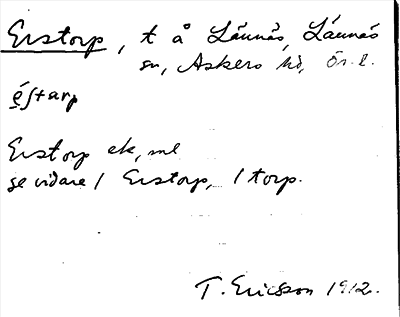 Erstorp, t å Lännäs, Lännäs
sn, Askers hd, Ör. l.
éstarp
Erstorp ek, ml
se vidare / Erstorp, / torp.
T. Ericsson 1912.